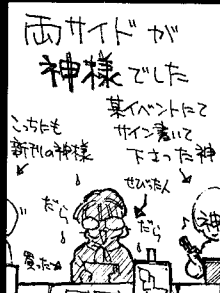 両サイドが
神様でした
某イベントにて
サイン書いて
下さった神
こっちにも
新刊の神様
ぜびったん
だら
だら
神
買った